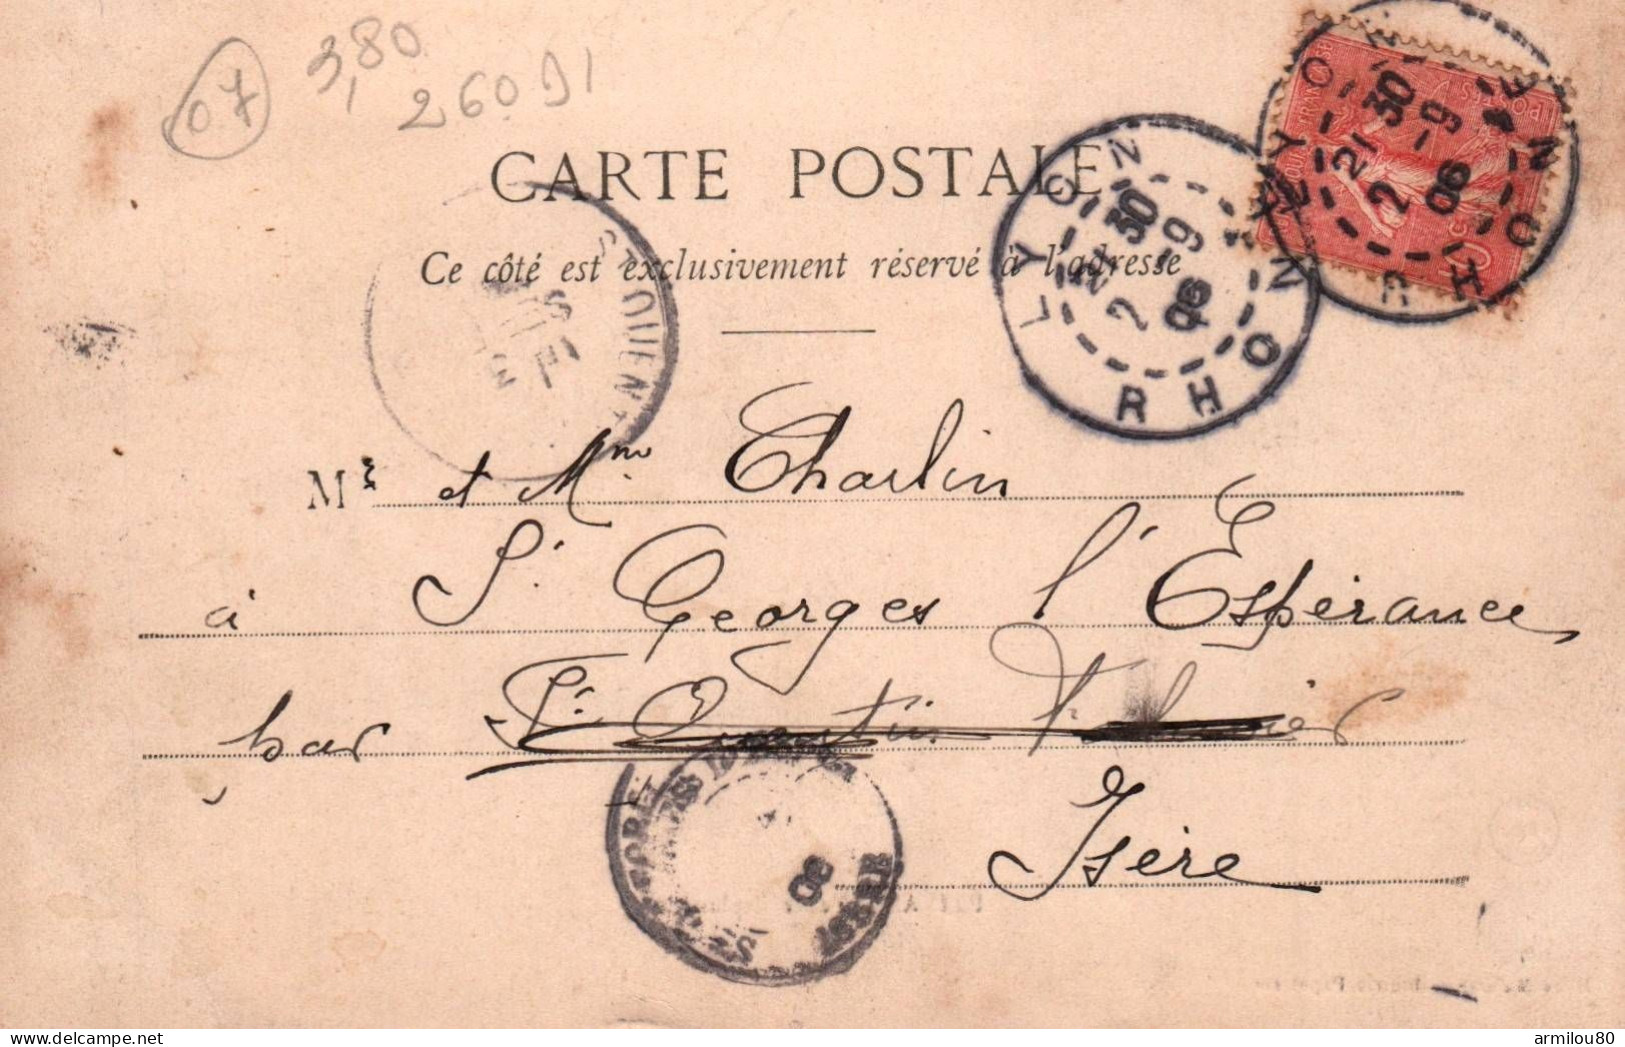 07
3,80
26091
CARTE POSTALE
Ce côté est exclusivement réservé à l'adresse
LYON
21 30
2 -9
06
RHONE
LYON
21 30
2 -9
06
RHONE
POSTES
ST QUENT
Mr et Mme Charlin
à St Georges l'Espérance
par St Quentin
Isère
06
ISERE
delcampe.net
armilou80